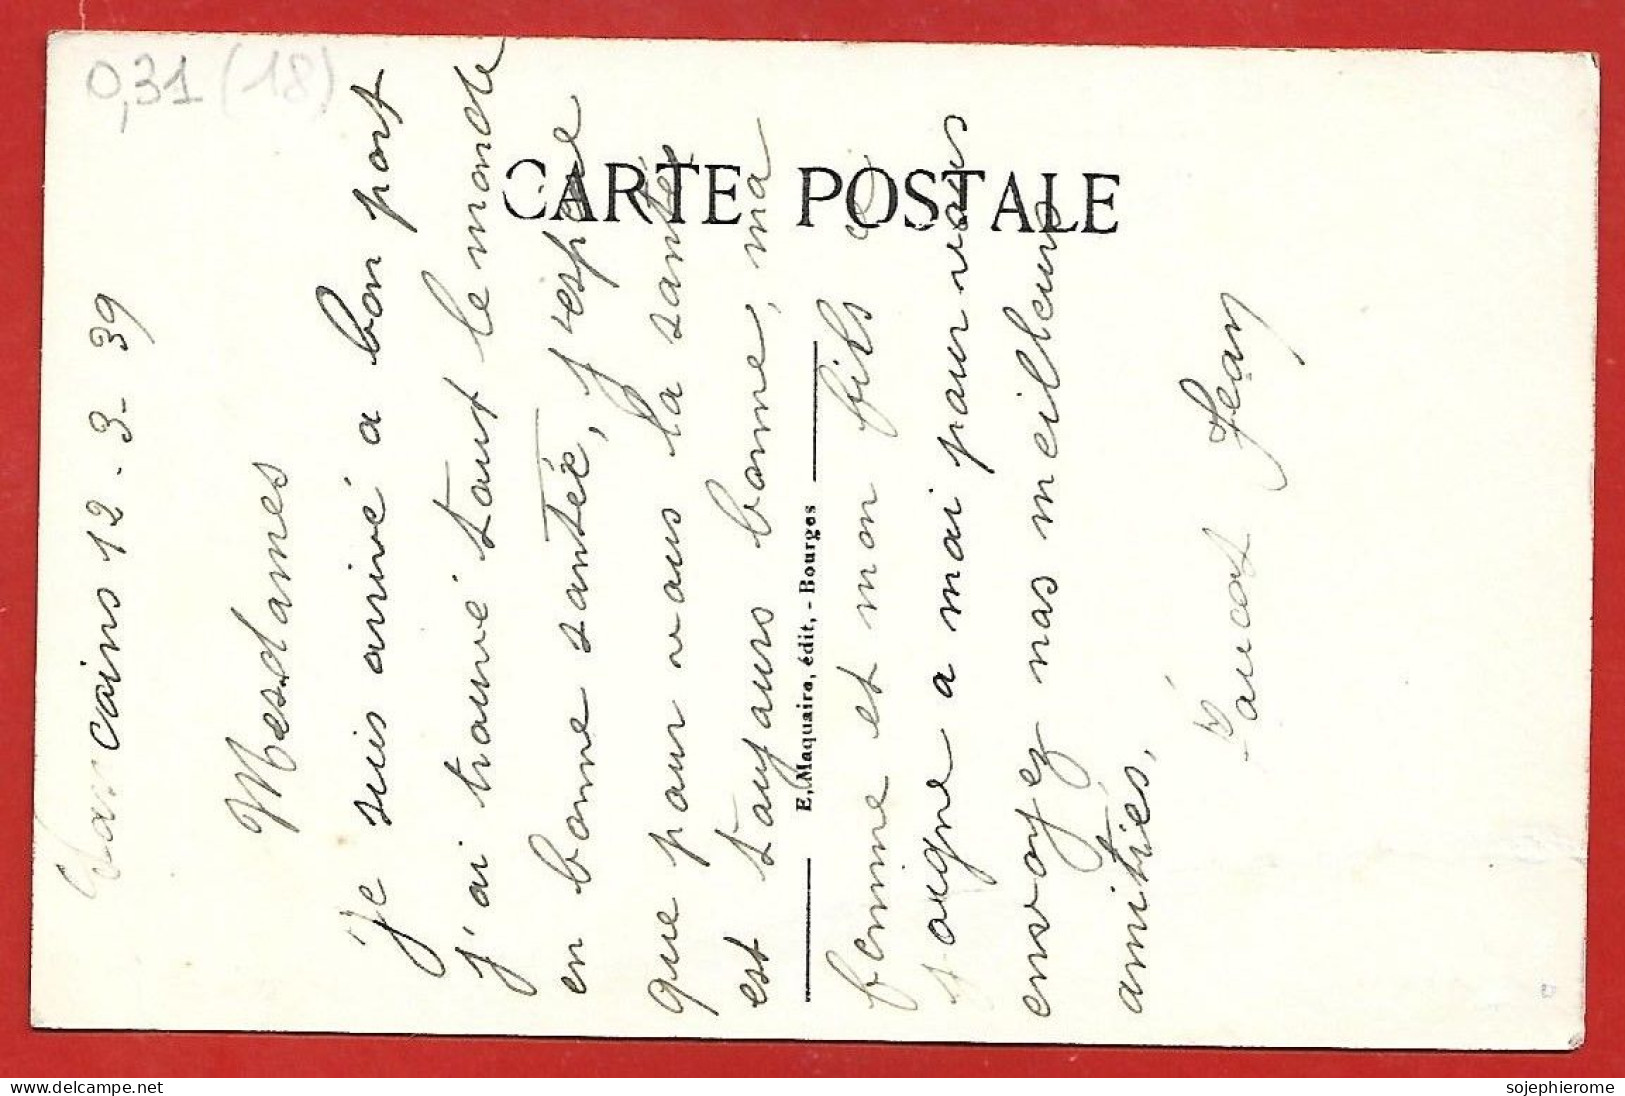 0,31 (18)
CARTE POSTALE
Sancoins 12-3-39
Mesdames
Je suis arrivé a bon port
j'ai trouvé tout le monde
en bonne santée, j'espère
que pour vous la santée
est toujours bonne, ma
femme et mon fils ce
soigne a moi pour vous
envoyez nos meilleurs
amitiés,
Jean
E. Maquaire, édit, - Bourges
sojephierome